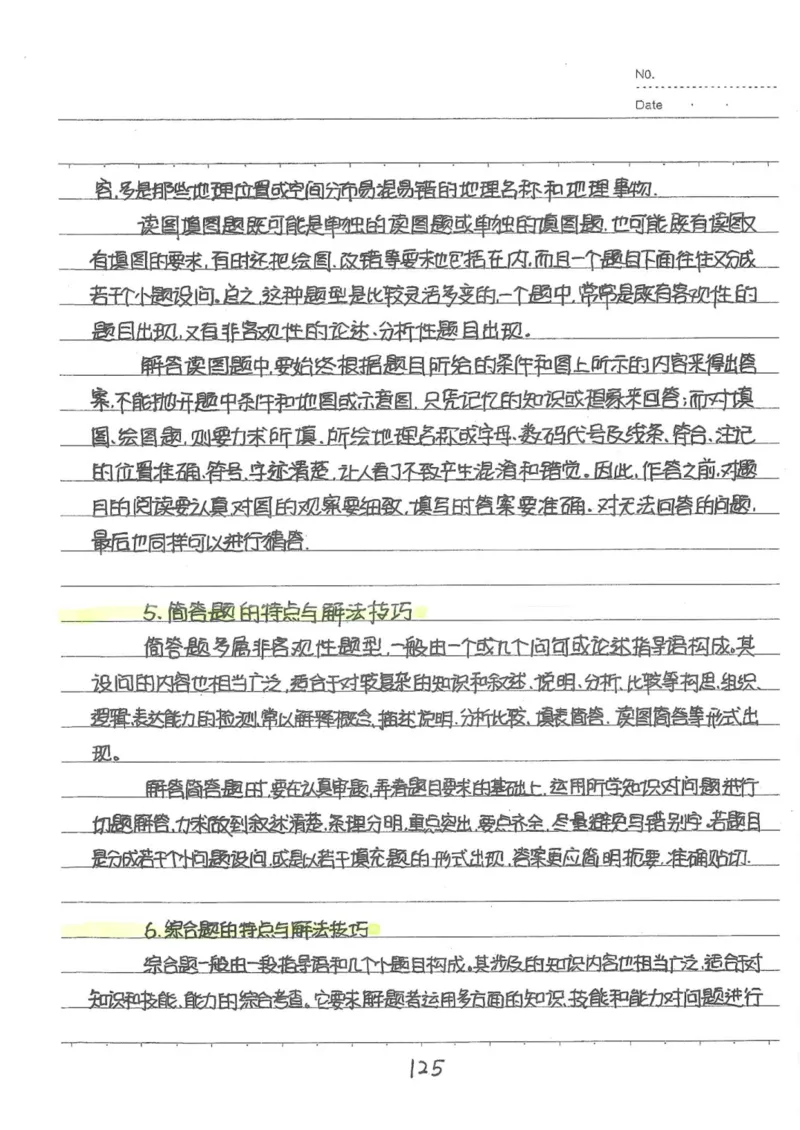 NO.
Date
容,多是那些地理位置或空间分布易混易错的地理名称和地理事物.
读图填图题既可能是单独的读图题或单独的填图题,也可能既有读图又
有填图的要求,有时还把绘图、改错等要求也包括在内,而且一个题目下面往往又分成
若干个小题设问。总之,这种题型是比较灵活多变的,一个题中,常常是既有客观性的
题目出现,又有非客观性的论述、分析性题目出现。
解答读图题中,要始终根据题目所给的条件和图上所示的内容来得出答
案,不能抛开题中条件和地图或示意图,只凭记忆的知识或想象来回答;而对填
图、绘图题,则要力求所填、所绘地理名称或字母、数码代号及线条、符合、注记
的位置准确,符号、字迹清楚,让人看了不致产生混淆和错觉。因此,作答之前,对题
目的阅读要认真对图的观察要细致,填写时答案要准确。对无法回答的问题,
最后也同样可以进行猜答.
5.简答题的特点与解法技巧
简答题多属非客观性题型,一般由一个或几个问句或论述指导语构成。其
设问的内容也相当广泛,适合于对较复杂的知识和叙述、说明、分析、比较等构思、组织、
逻辑、表达能力的检测,常以解释概念、描述说明、分析比较、填表简答、读图简答等形式出
现。
解答简答题时,要在认真审题,弄清题目要求的基础上,运用所学知识对问题进行
切题解答,力求做到叙述清楚,条理分明,重点突出,要点齐全,尽量避免写错别字。若题目
是分成若干个小问题设问,或是以若干填充题的形式出现,答案更应简明扼要,准确贴切.
6.综合题的特点与解法技巧
综合题一般由一段指导语和几个小题目构成。其涉及的知识内容也相当广泛,适合于对
知识和技能、能力的综合考查。它要求解题者运用多方面的知识、技能和能力对问题进行
125